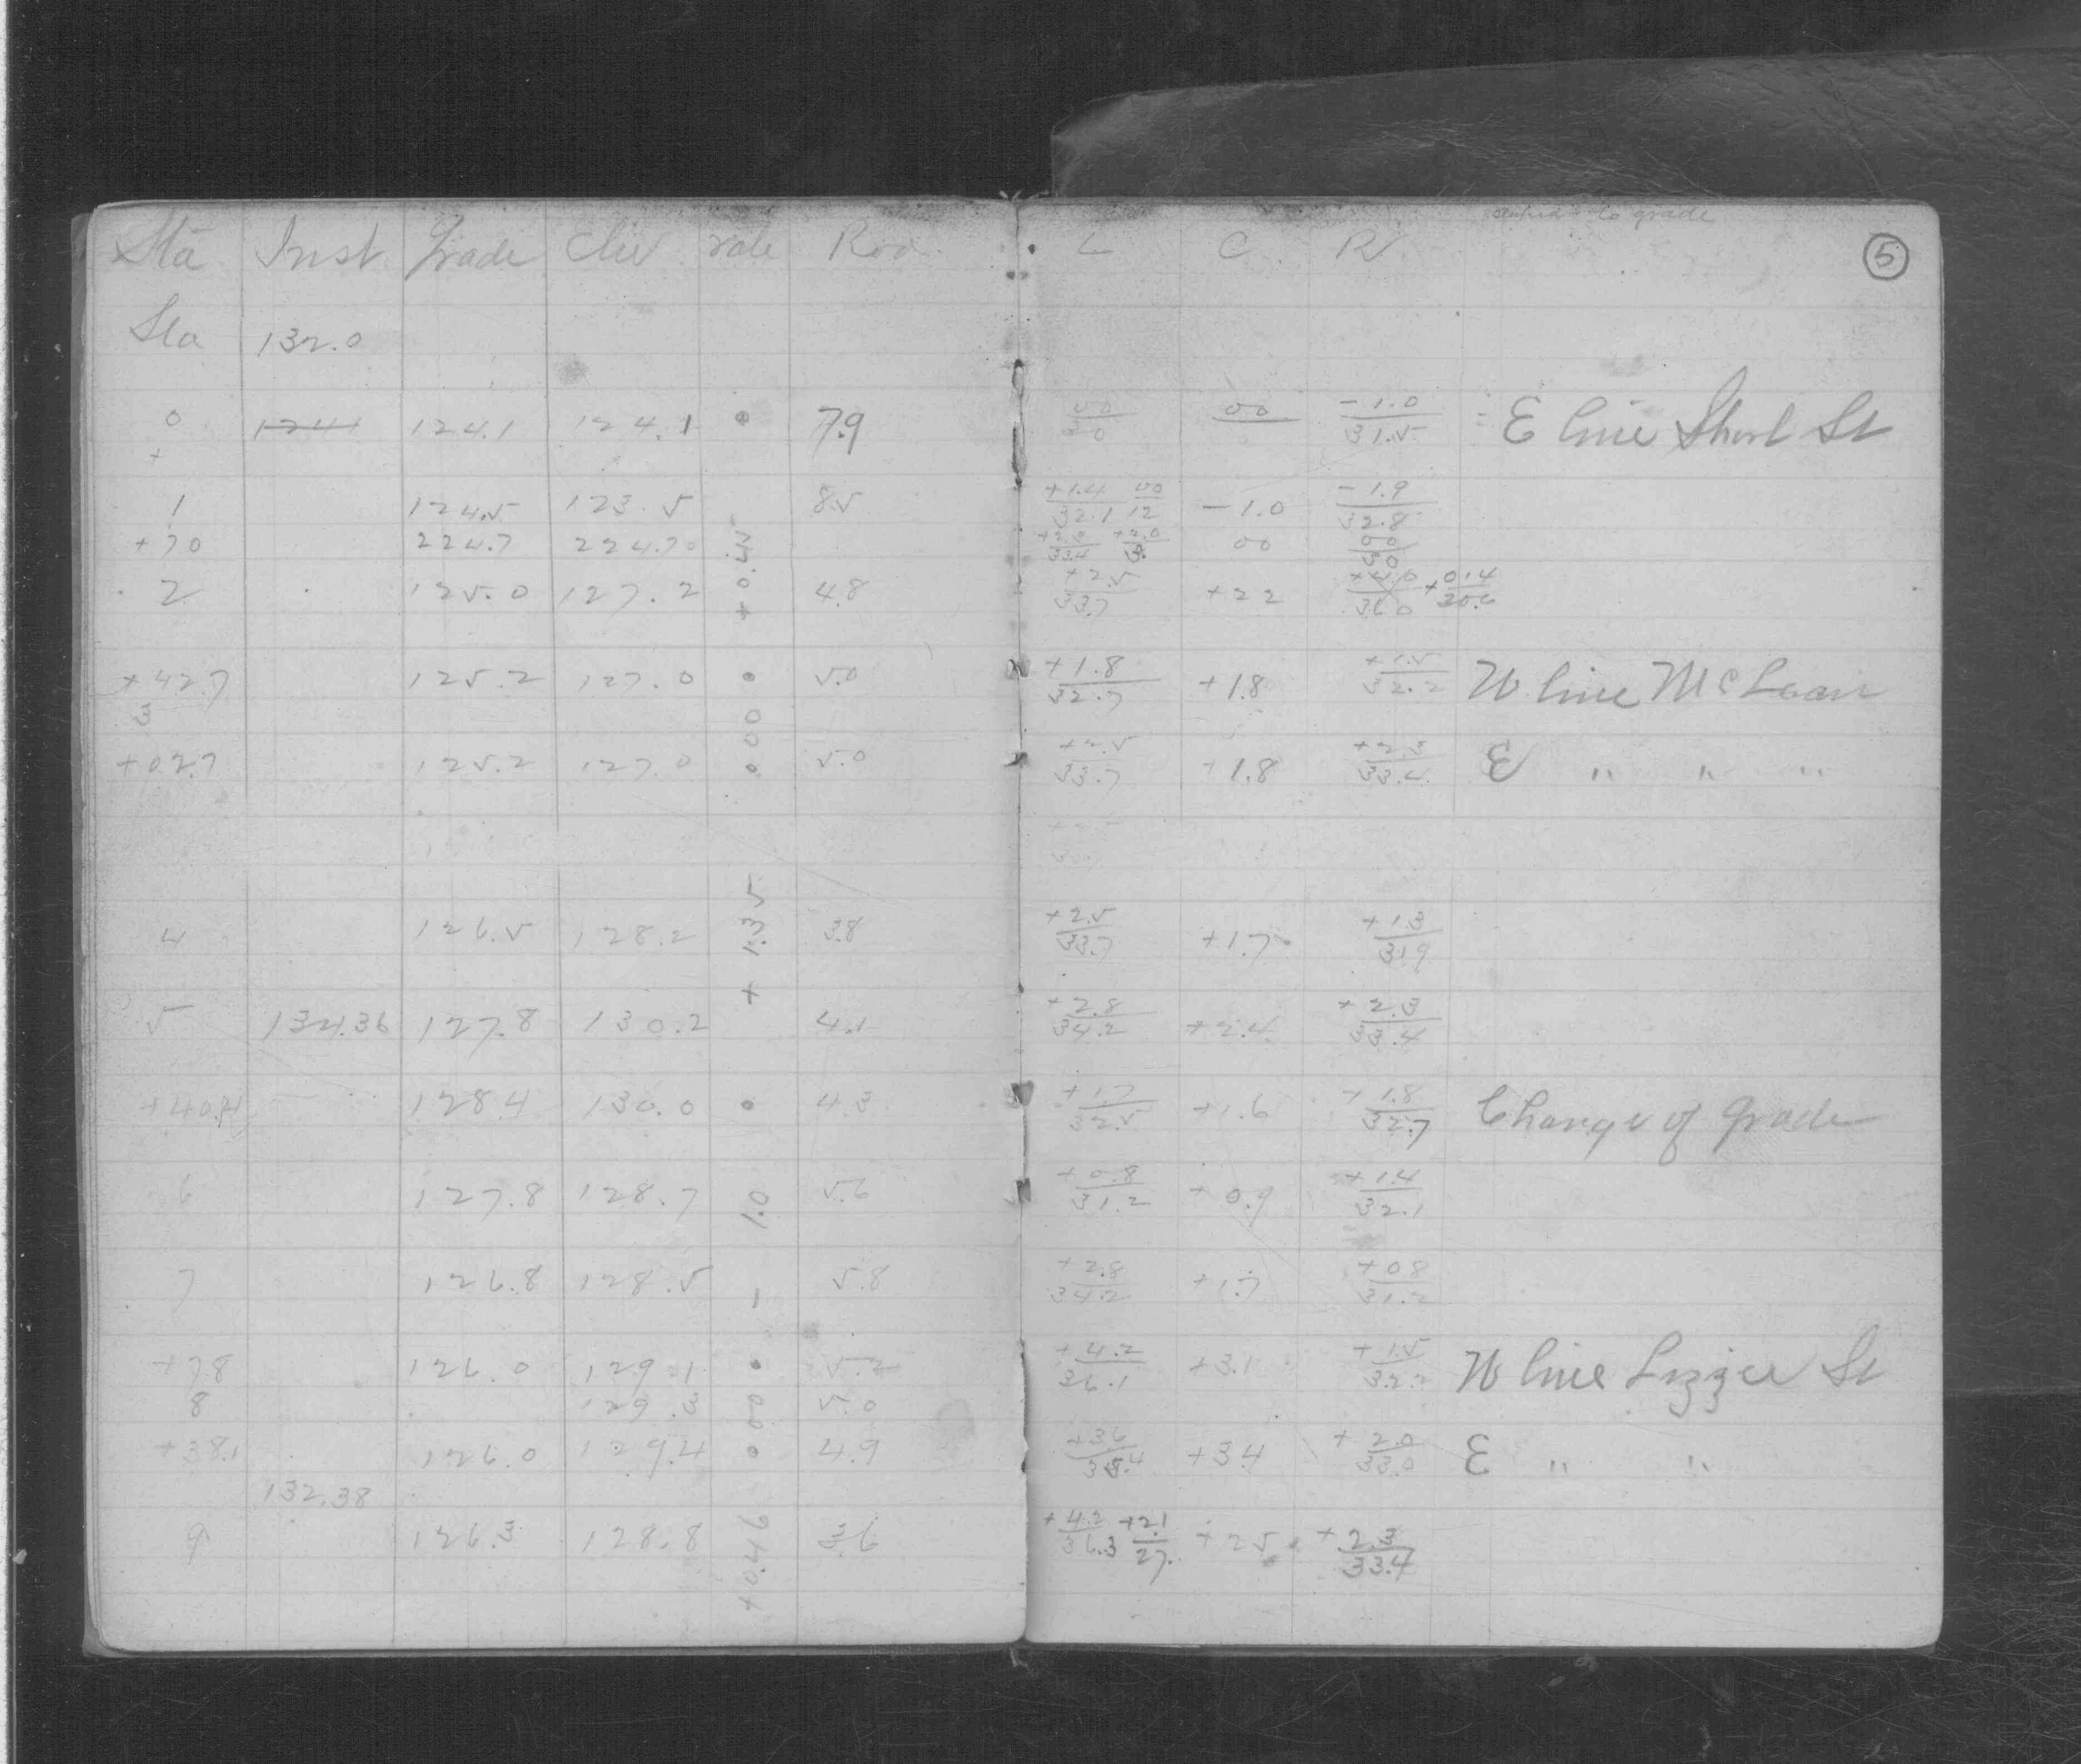 to grade
Sta Inst Grade Elev rate Rod L C R 5
Sta 132.0
0 1241 124.1 124.1 0 7.9 00/0 00 -1.0/31.5 E line Short St
+
1 124.5 123.5 8.5 +1.4/32.1 00/12 -1.0 -1.9/32.8
+70 224.7 224.70 +0.45 00 00/30
2 125.0 127.2 4.8 +2.5/33.7 +2 2 +4.0/36.0 +0.4/30.6
+42.7 125.2 127.0 0 5.0 +1.8/32.7 +1.8 +1.5/32.2 W line McLean
3 0.00
+02.7 125.2 127.0 5.0 +2.5/33.7 +1.8 +2.3/33.4 E " " "
4 126.5 128.2 +1.35 3.8 +2.5/33.7 +1.7 +1.3/31.9
5 134.36 127.8 130.2 4.1 +2.8/34.2 +2.4 +2.3/33.4
+40.4 128.4 130.0 0 4.3 +1.7/32.5 +1.6 +1.8/32.7 Change of Grade
6 127.8 128.7 -1.0 5.6 +0.8/31.2 +0.9 +1.4/32.1
7 126.8 128.5 5.8 +2.8/34.2 +1.7 +0.8/31.2
+78 126.0 129.1 0 5.2 +4.2/36.1 +3.1 +1.5/32.2 W line Lizzie St
8 129.3 00 5.0
+38.1 126.0 129.4 0 4.9 +3.6/35.4 +3.4 +2.0/33.0 E " "
132.38
9 126.3 128.8 +0.46 3.6 +4.2/36.3 +2.1/27. +2.5 +2.3/33.4